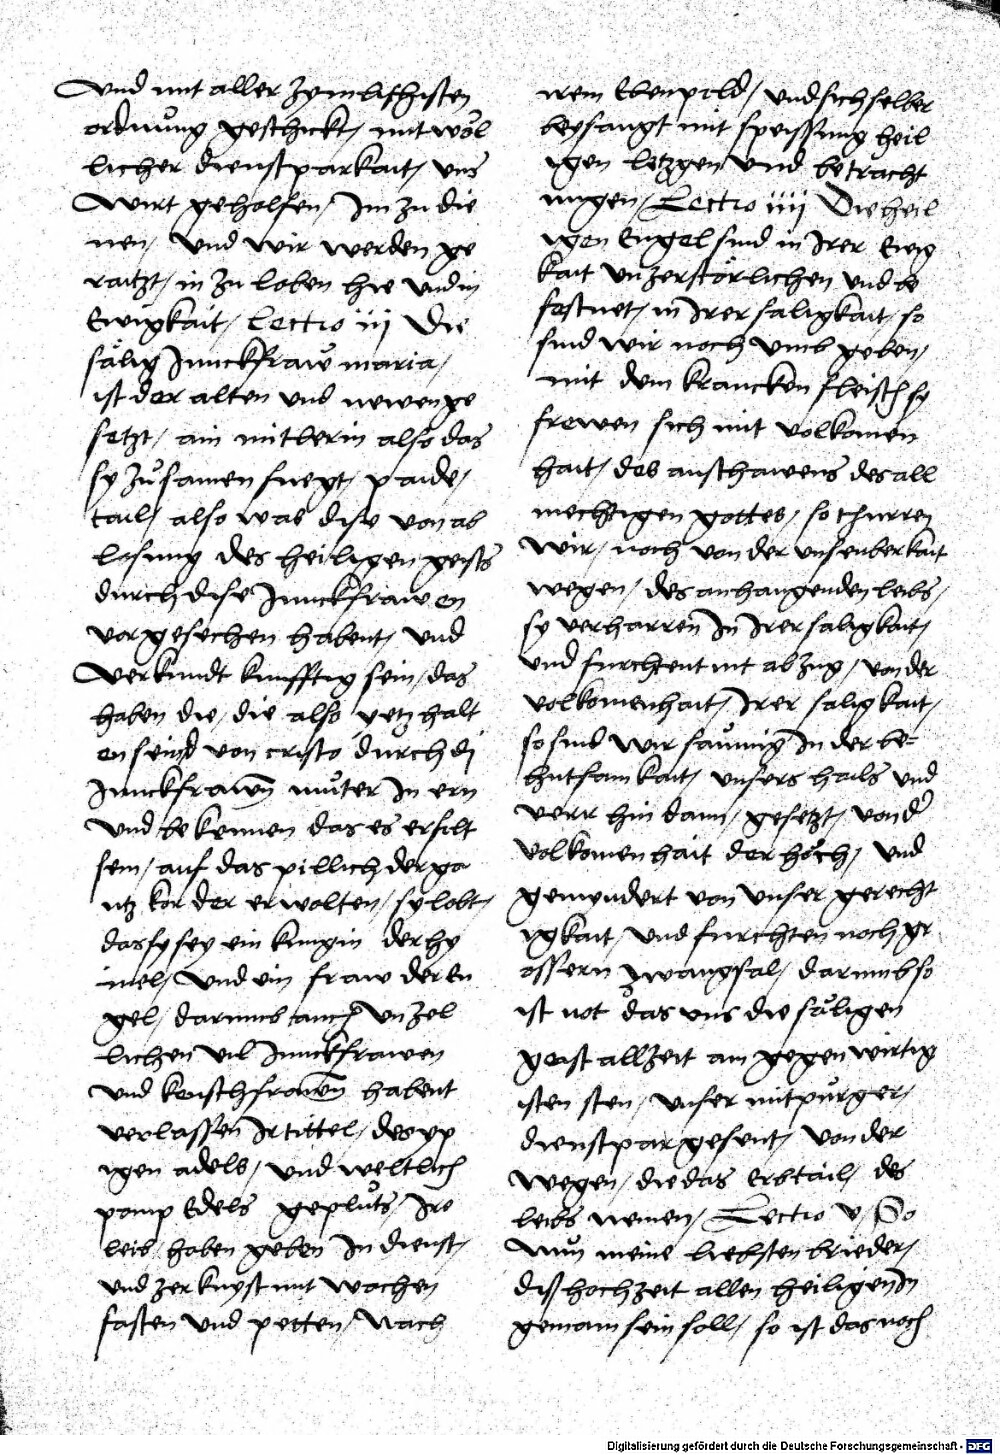 und mit aller zymlichisten
ordnu̓ng geschickt / mit wo̓l
licher dienstparkait / uns
Wirt geholfen / Im zu die
nen / und wir werden ge
raitzt / in zu loben hie und in
Ewigkait / Lectio iij Die
sa̓lig Junckfraw maria /
ist der alten und newen ge
setzt / ain mitlerin also das
sy zu̓samen fuegt / paide /
tail / also was dise von
losung des heiligen geists
durch dise Junckfrawen
vor gesechen habent / und
verkundt kunfftig sein / das
haben die / die also yetz halt
en seind von cristo durch di
Junckfrawen mu̓ter In ern
und bekennen das es erfilt
sein / auf das pillich der ga
ntz kor der erwolten / sy lobt /
das sy sey ein kungin der hy
mel / und ein fraw der En
gel / darumb auch unzel
lichen vil Junckfrawen
und keuschfrawen habent
verlassen Ir tittel / des yp
igen adels / und weltlich
pomp Edels geplu̓ts / Ire
leib / haben geben In dienst /
und zerknyst mit wachen
fasten und petten / Nach
irem Ebenpild / und sich selber
beysangt mit speissung heil
igen letzgen und betracht
ungen / Lectio iiij Die heil
igen Engel sind in Irer Ewig
kait unzersto̓rlichen und be
festnet / in Irer saligkait / so
sind wir noch umb geben /
mit dem krancken fleisch sy
frewen sich mit volkomen
hait / des anschawens des all
mechtigen gottes / so thurren
wir / noch von der unseuberkait
wegen / des anhangenden leibs /
sy verharren In Irer saligkait /
und furchtent nit abzug / von der
volkomenhait / Irer saligkait /
so sind wir sau̓mig In der be=
hutsamkait / unsers hails und
verr hin dann / gesetzt / von d̓
volkomenhait der ho̓ch / und
gemyndert von unser gerecht
igkait / und furchten noch gr
ossern zwangsal / darumb so
ist not das uns die sa̓ligen
geist allzeit am gegenwirtig
isten sten / unser mitpu̓rger /
dienstpar gesent / von der
wegen / die das Erbtail / des
leibs nemen / Lectio v / So
Nu̓n meine liebsten brieder /
diss hochzeit allen heiligen In
gemain sein soll / so ist das noch
Digitalisierung gefördert durch die Deutsche Forschungsgemeinschaft - DFG